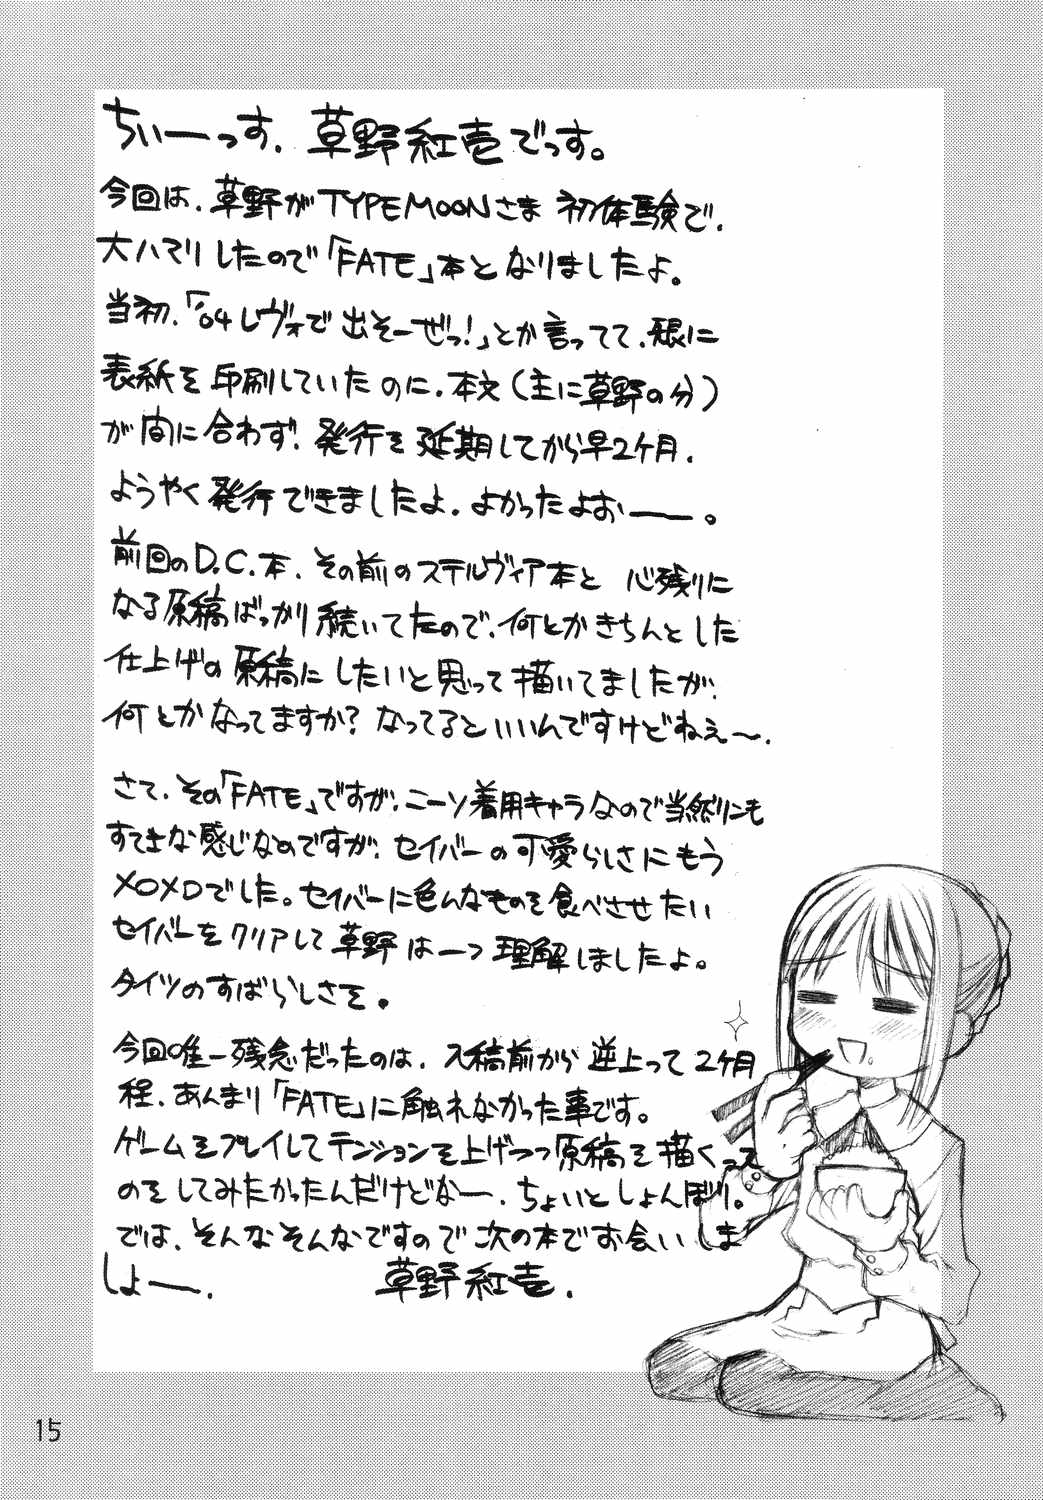 ちぃーっす、草野紅壱でっす。
今回は、草野がTYPEMOONさま 初体験で、
大ハマリしたので「FATE」本となりましたよ。
当初、「'04レヴォで出そーぜっ!」とか言ってて、
表紙を印刷していたのに、本文（主に草野の分）
が間に合わず、発行を延期してから早2ヶ月、
ようやく発行できましたよ、よかったよおーー。
前回のD.C.本、その前のステルヴィア本と 心残りに
なる原稿ばっかり続いてたので、何とかきちんとした
仕上げの原稿にしたいと思って描いてましたが、
何とかなってますか? なってるといいんですけどねぇ～、
さて、その「FATE」ですが、ニーソ着用キャラなので当然リンも
すてきな感じなのですが、セイバーの可愛らしさにもう
XOXDでした。セイバーに色んなものを食べさせたい
セイバーをクリアして草野は一つ理解しましたよ。
タイツのすばらしさを。
今回唯一残念だったのは、入稿前から逆上って2ヶ月
程、あんまり「FATE」に触れなかった事です。
ゲームをプレイしてテンションを上げつつ原稿を描くって
のをしてみたかったんだけどなー、ちょいとしょんぼり。
では、そんなそんなですので次の本でお会いしま
しょー、 草野紅壱、
15